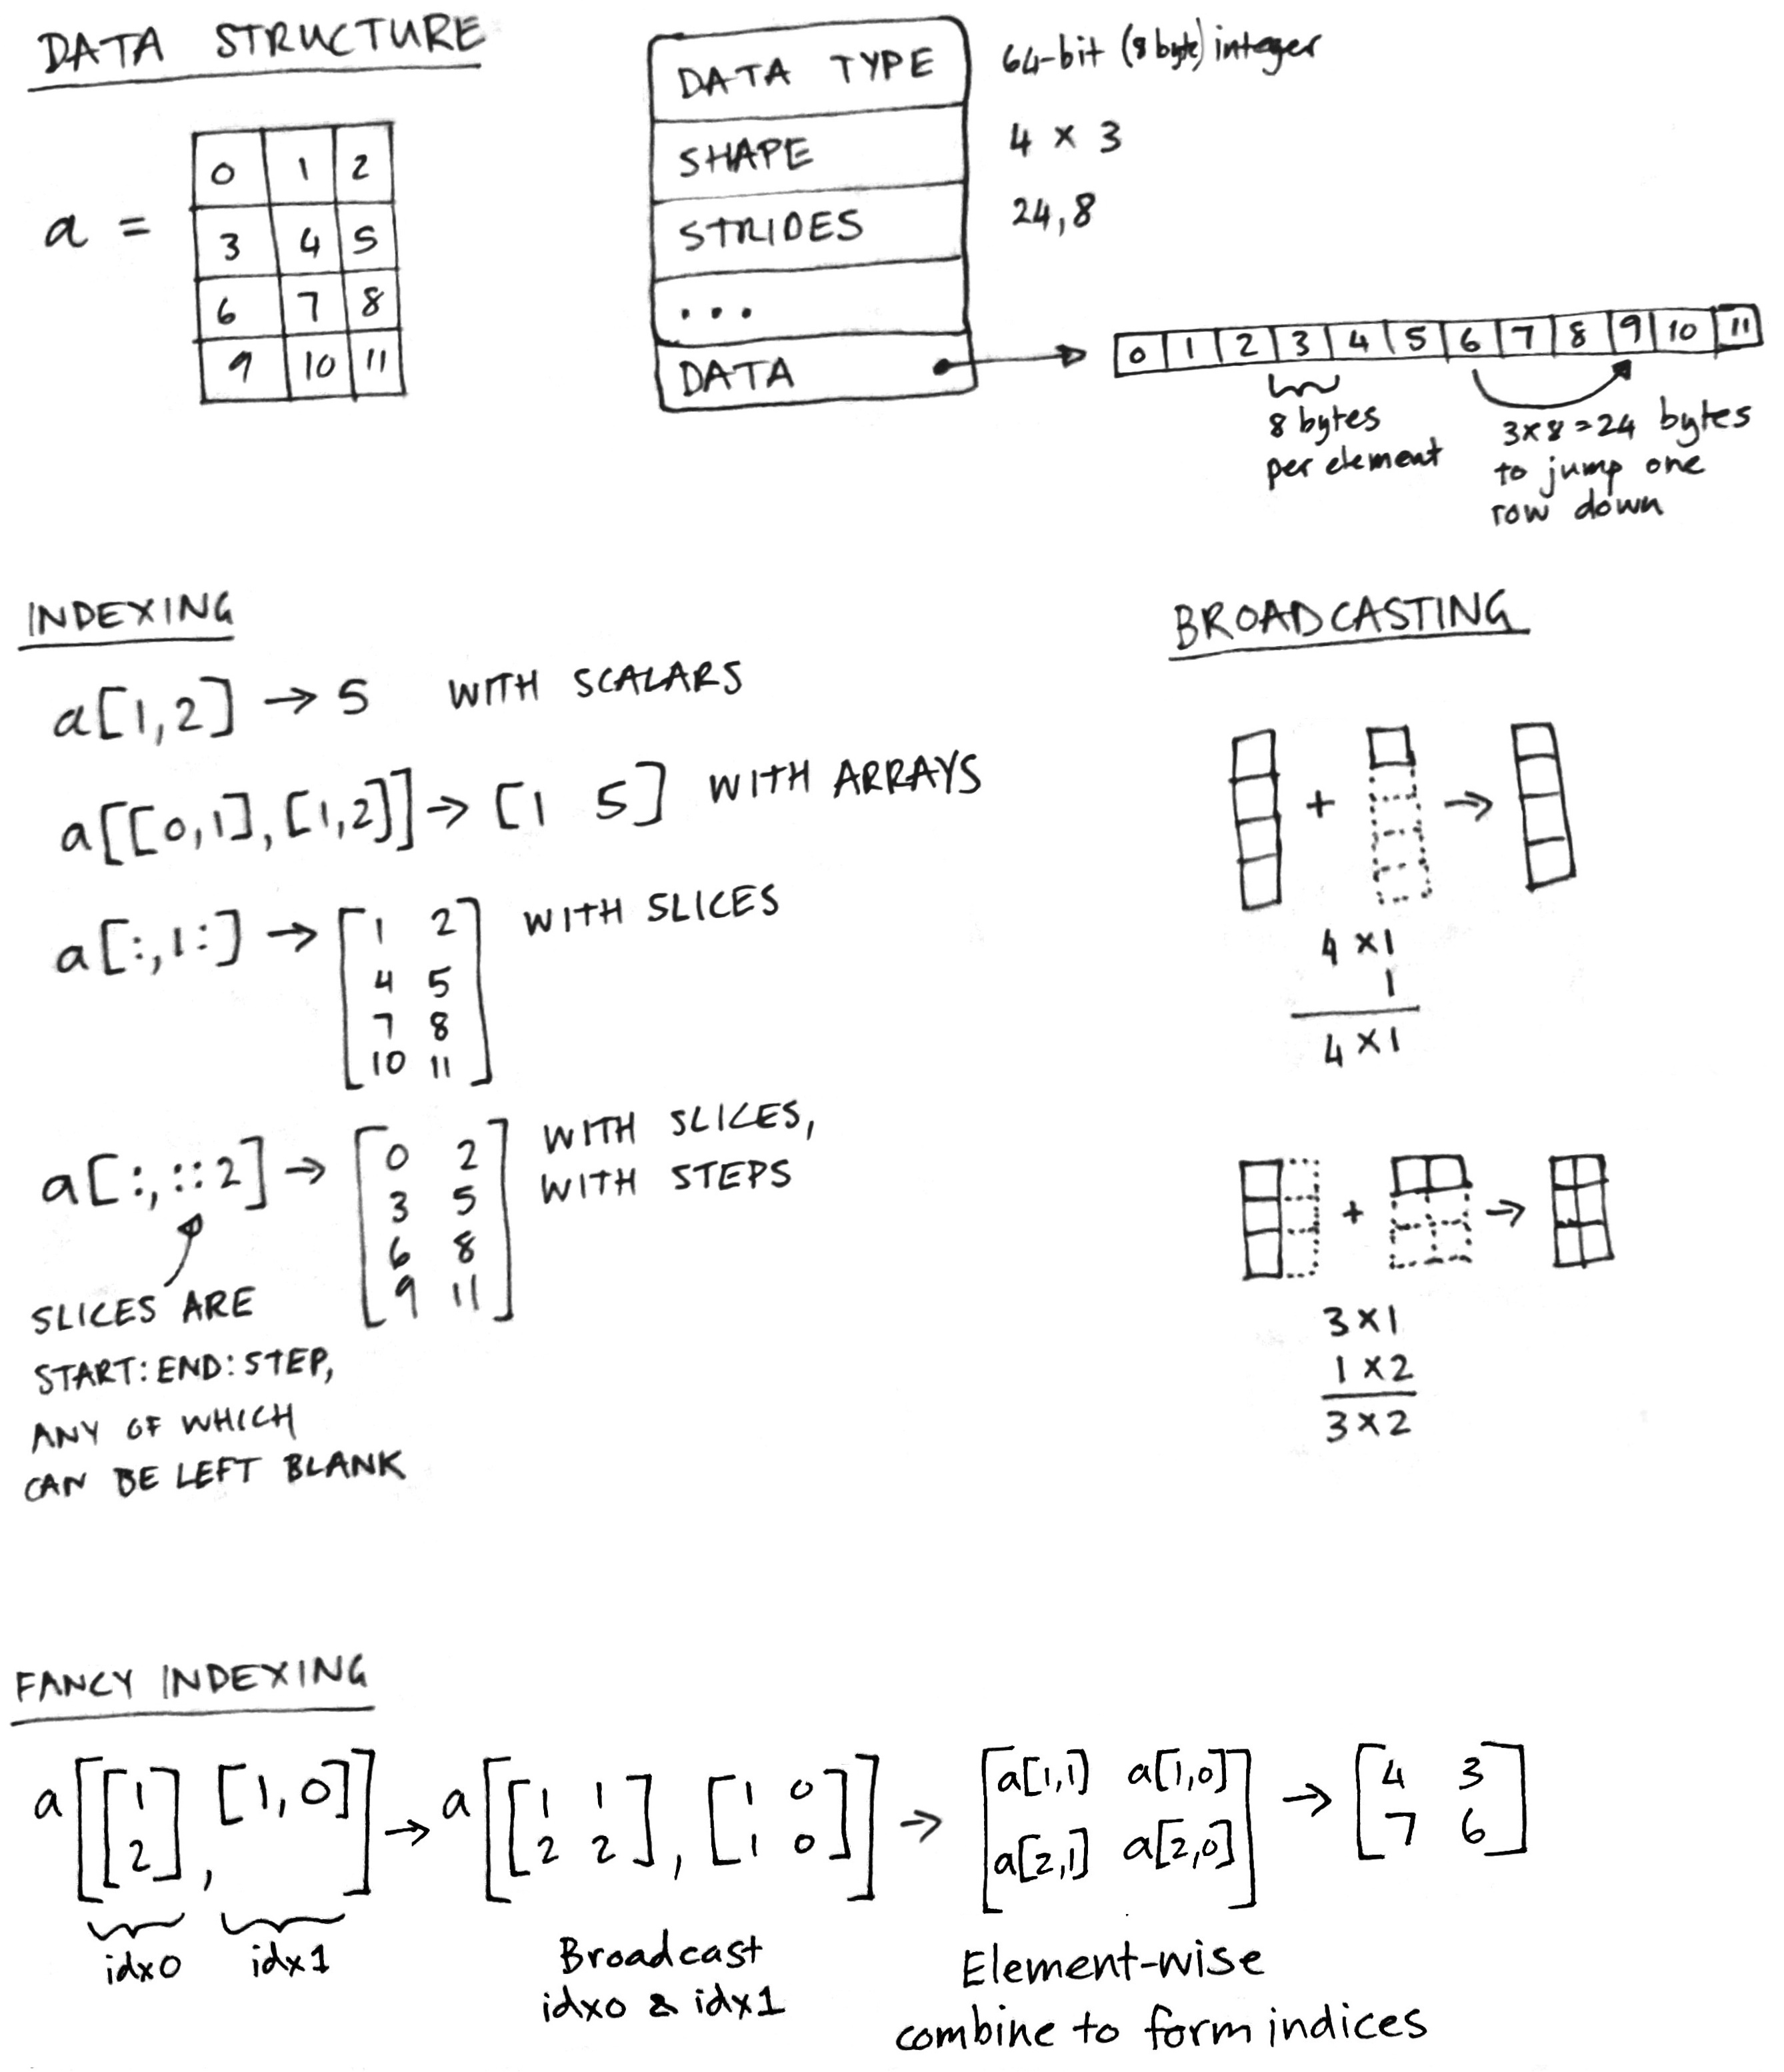 DATA STRUCTURE
a =
0 1 2
3 4 5
6 7 8
9 10 11
DATA TYPE 64-bit (8 byte) integer
SHAPE 4 × 3
STRIDES 24,8
...
DATA
0 1 2 3 4 5 6 7 8 9 10 11
8 bytes
per element
3×8=24 bytes
to jump one
row down
INDEXING
a[1,2] → 5 WITH SCALARS
a[[0,1],[1,2]] → [1 5] WITH ARRAYS
a[:,1:] → WITH SLICES
1 2
4 5
7 8
10 11
a[:,::2] → WITH SLICES,
WITH STEPS
0 2
3 5
6 8
9 11
SLICES ARE
START:END:STEP,
ANY OF WHICH
CAN BE LEFT BLANK
BROADCASTING
+ →
4 ×1
1
4 ×1
+ →
3 ×1
1 ×2
3 ×2
FANCY INDEXING
a[[1 2], [1,0]] → a[[1 1 2 2], [1 0 1 0]] → [a[1,1] a[1,0] a[2,1] a[2,0]] → [4 3 7 6]
idx0 idx1
Broadcast
idx0 & idx1
Element-wise
combine to form indices